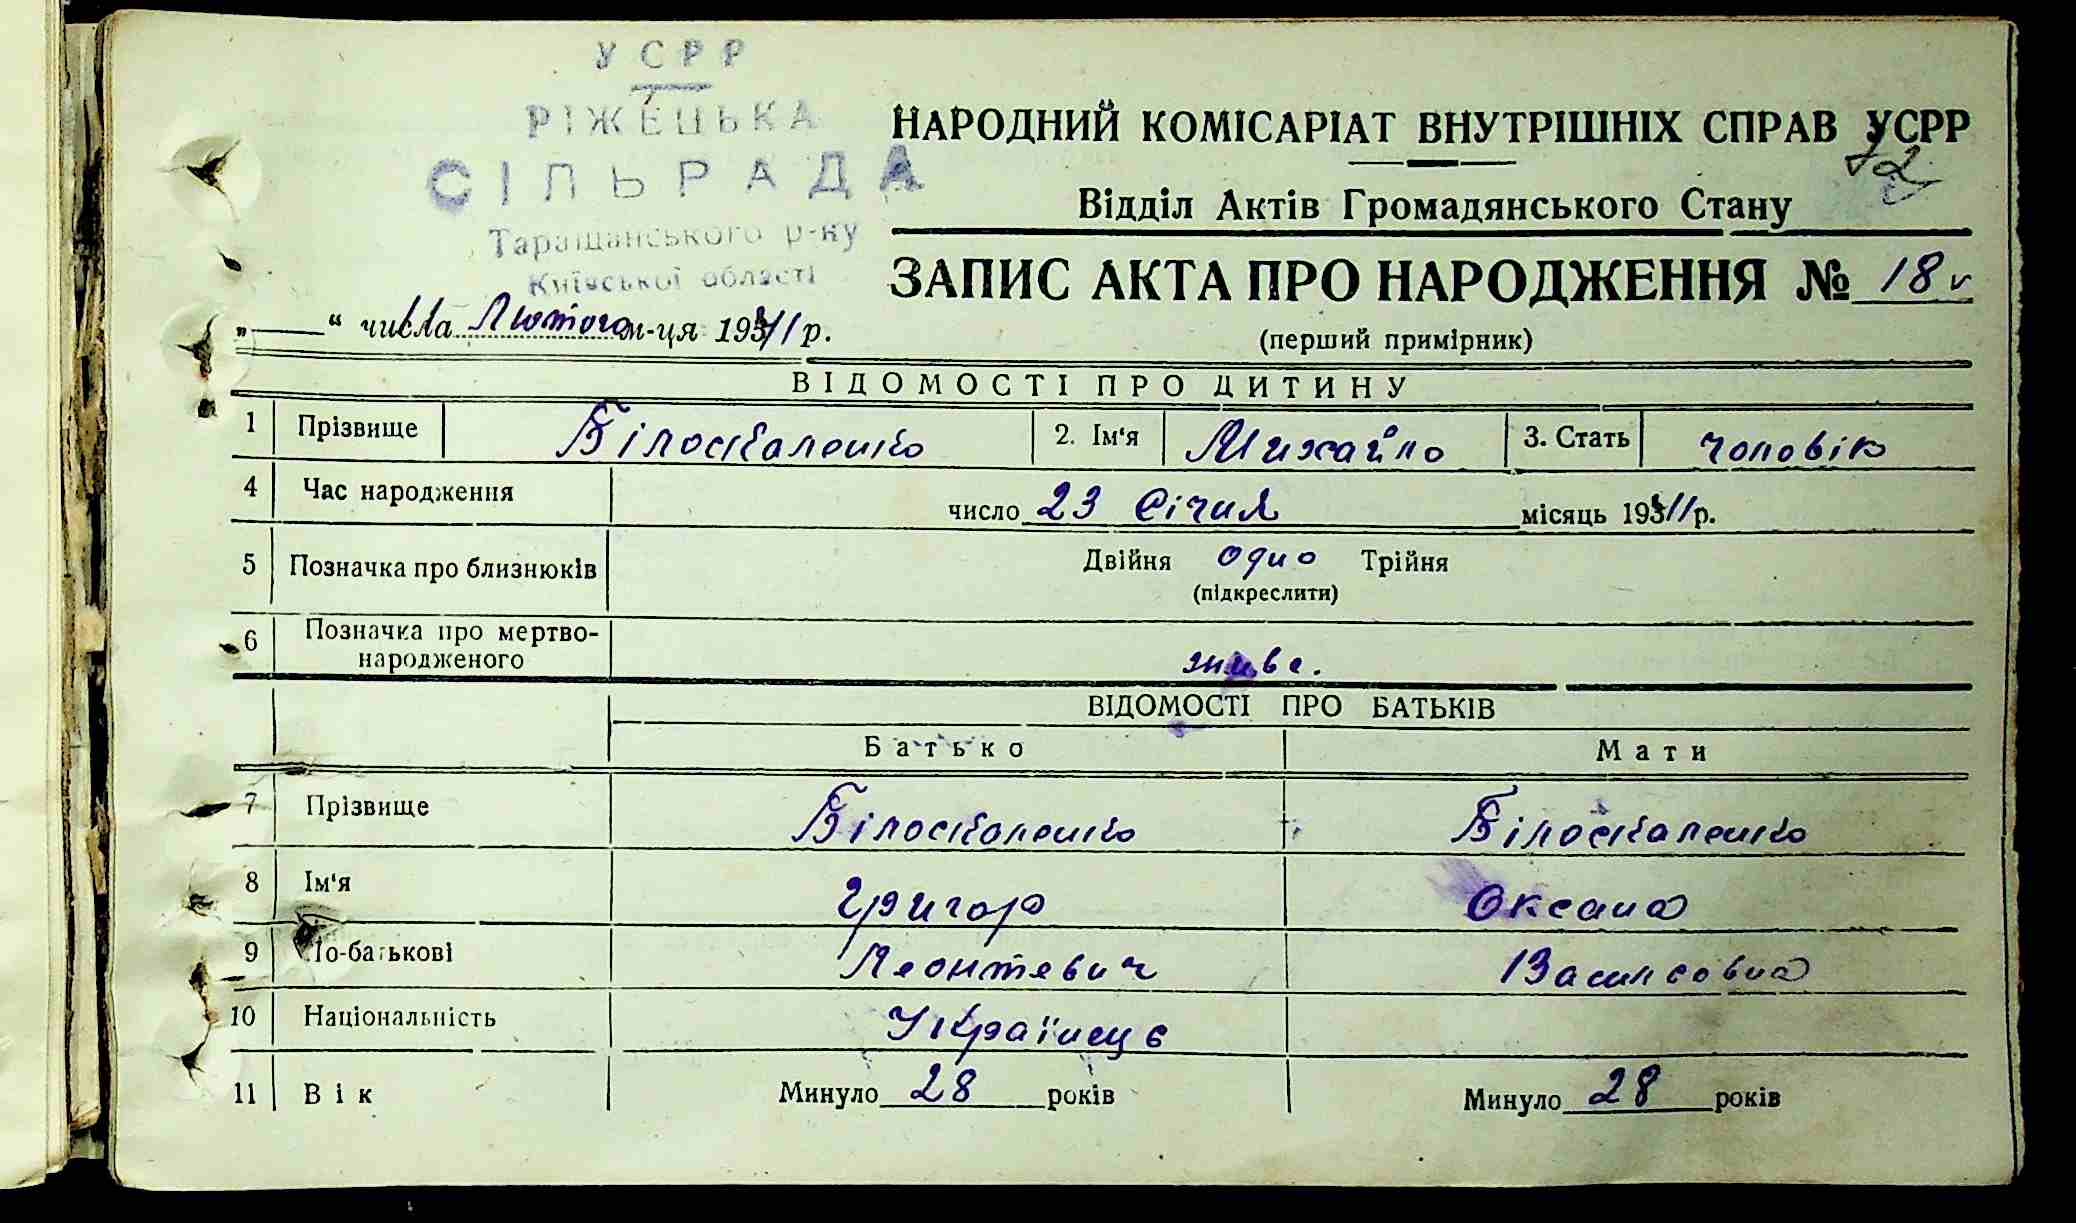 УСРР
РІЖЕЦЬКА
СІЛЬРАДА
Таращанського р-ну
Київської області
НАРОДНИЙ КОМІСАРІАТ ВНУТРІШНІХ СПРАВ УСРР
Відділ Актів Громадянського Стану
ЗАПИС АКТА ПРО НАРОДЖЕННЯ № 18
(перший примірник)
„—“ числа Лютого м-ця 1931 р.
ВІДОМОСТІ ПРО ДИТИНУ
1 Прізвище Білоскаленко 2. Ім'я Михайло 3. Стать чоловік
4 Час народження число 23 Січня місяць 193 р.
5 Позначка про близнюків Двійня одно Трійня
(підкреслити)
6 Позначка про мертво-
народженого живе.
ВІДОМОСТІ ПРО БАТЬКІВ
Батько Мати
7 Прізвище Білоскаленко Білоскаленко
8 Ім'я Григор Оксана
9 По-батькові Леонтевич Василовна
10 Національність Українець
11 Вік Минуло 28 років Минуло 28 років